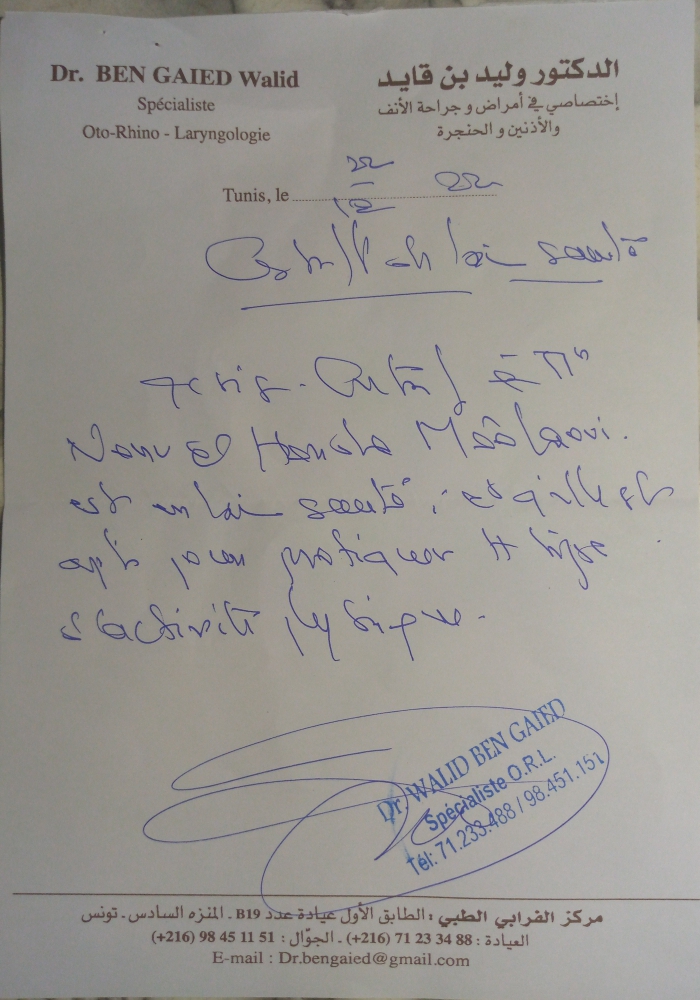 Dr. BEN GAIED Walid
Spécialiste
Oto-Rhino - Laryngologie
الدكتور وليد بن قايد
إختصاصي في أمراض و جراحة الأنف
والأذنين و الحنجرة
Tunis, le
santé
à
Nour El Houda
est en santé, et qu'elle est
apt pour pratiquer
d'activité physique.
Dr. WALID BEN GAIED
Spécialiste O.R.L.
Tél: 71.233.488 / 98.451.151
مركز الفرابي الطبي : الطابق الأول عيادة عدد B19 ـ المنزه السادس ـ تونس
العيادة : 88 34 23 71 (216+) ـ الجوّال : 51 11 45 98 (216+)
E-mail : Dr.bengaied@gmail.com